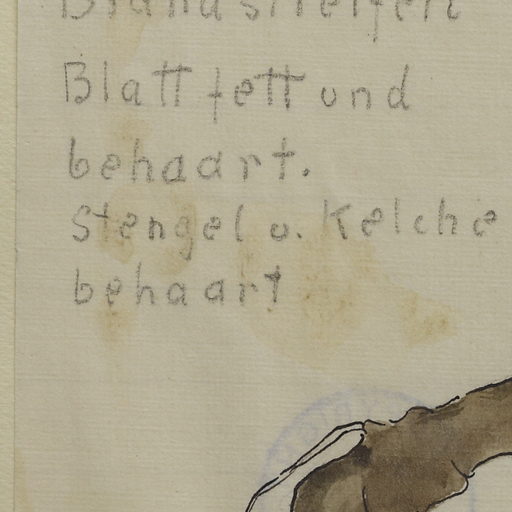 Blatt fett und
behaart.
Stengel u. Kelche
behaart